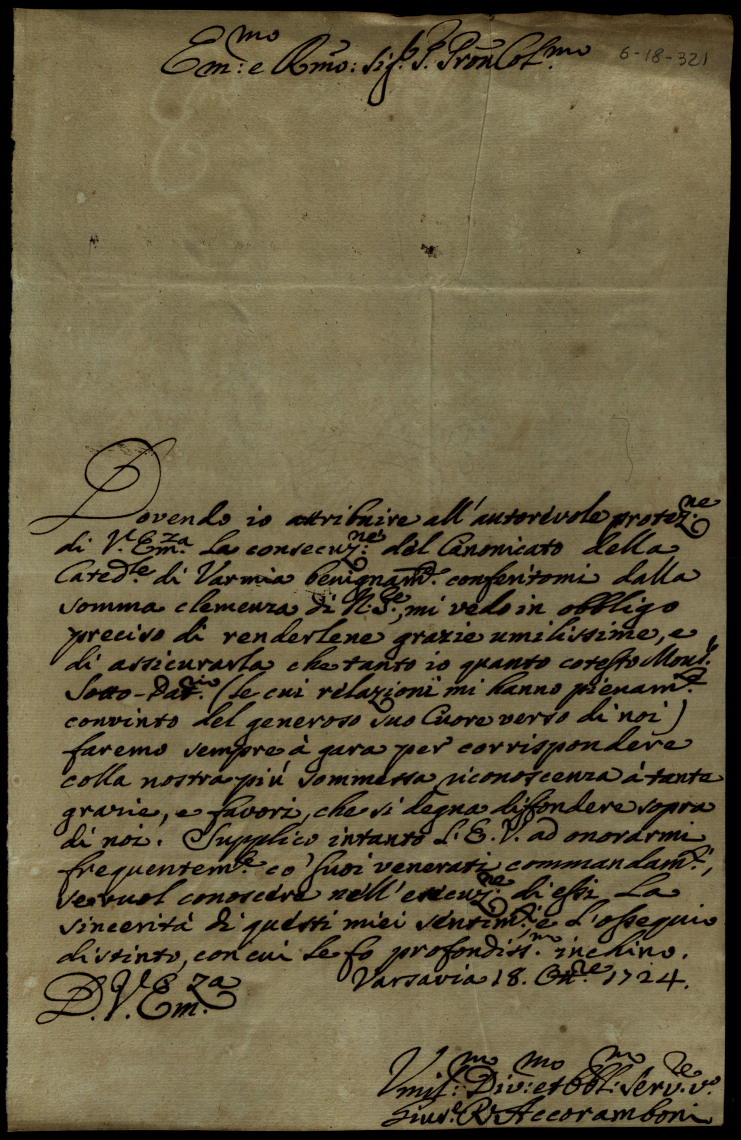 Em:mo e Rmo: Sig.r P.r Pron Col.mo
6-18-321
Dovendo io attribuire all'autorévole protez:ne
di V.Em:za la consecuz:ne del Canonicato della
Cated.le di Varmia benignam.te conferitomi dalla
somma clemenza di N.S.re, mi vedo in obbligo
preciso di renderlene grazie umilissime, e
di assicurarla che tanto io quanto cotesto Mons.r
Sotto-Dat.rio (le cui relazioni mi hanno pienam.te
convinto del generoso suo Cuore verso di noi)
faremo sempre à gara per corrispondere
colla nostra più sommessa riconoscenza à tante
grazie, e favori, che si degna difondere sopra
di noi. Supplico intanto L'E.V. ad onorarmi
frequentem.te co' suoi venerati commandam.ti,
se vuol conoscere nell'esecuz:ne di essi la
sincerità di questi miei sentim.ti, e l'ossequio
distinto, con cui le fo profondiss.mo inchino.
Varsavia 18. Ott.re 1724.
D.V.Em.za
Vmil:mo Div:mo et Obbl:mo Serv.re v.o
Gius.e Accoramboni